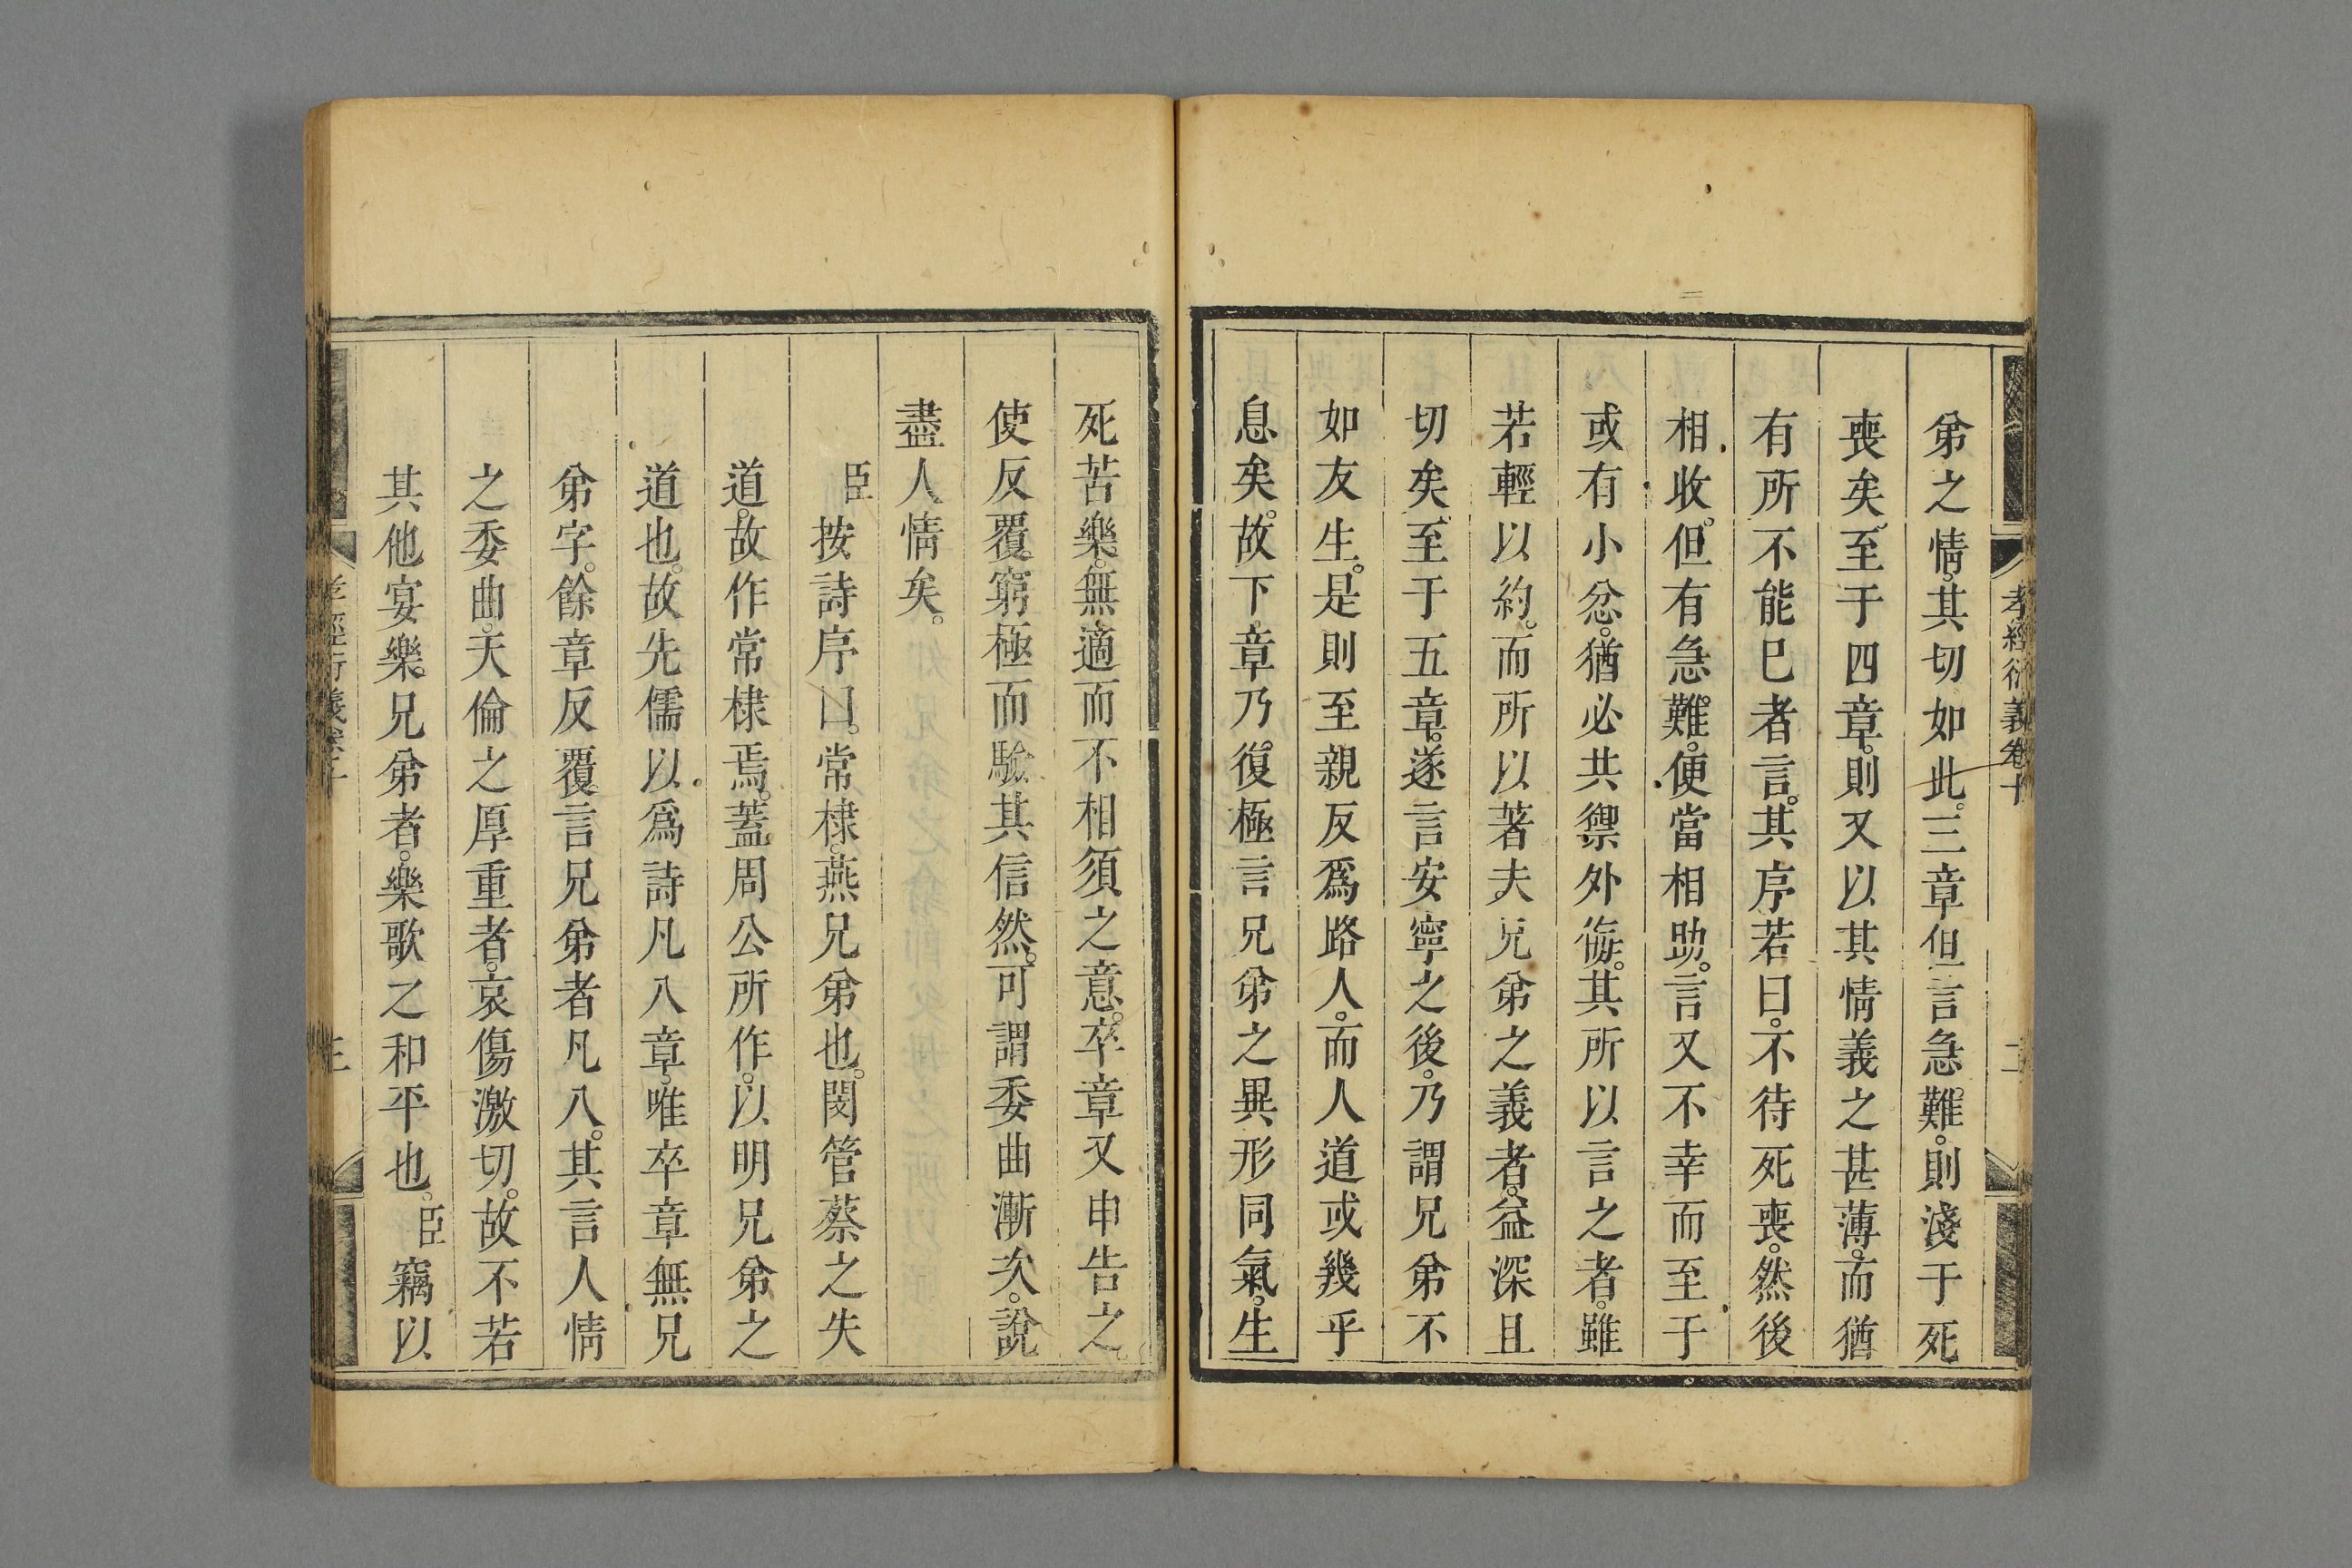 孝經衍義卷十
二
弟之情。其切如此。三章但言急難。則淺于死
喪矣。至于四章。則又以其情義之甚薄。而猶
有所不能已者言。其序若曰。不待死喪。然後
相收。但有急難。便當相助。言又不幸而至于
或有小忿。猶必共禦外侮。其所以言之者。雖
若輕以約。而所以著夫兄弟之義者。益深且
切矣。至于五章。遂言安寧之後。乃謂兄弟不
如友生。是則至親反爲路人。而人道或幾乎
息矣。故下章乃復極言兄弟之異形同氣。生
死苦樂。無適而不相須之意。卒章又申告之。
使反覆窮極而驗其信然。可謂委曲漸次。說
盡人情矣。
臣按詩序曰。常棣。燕兄弟也。閔管蔡之失
道。故作常棣焉。蓋周公所作。以明兄弟之
道也。故先儒以爲詩凡八章。唯卒章無兄
弟字。餘章反覆言兄弟者凡八。其言人情
之委曲。天倫之厚重者。哀傷激切。故不若
其他宴樂兄弟者。樂歌之和平也。臣竊以
孝經衍義卷十